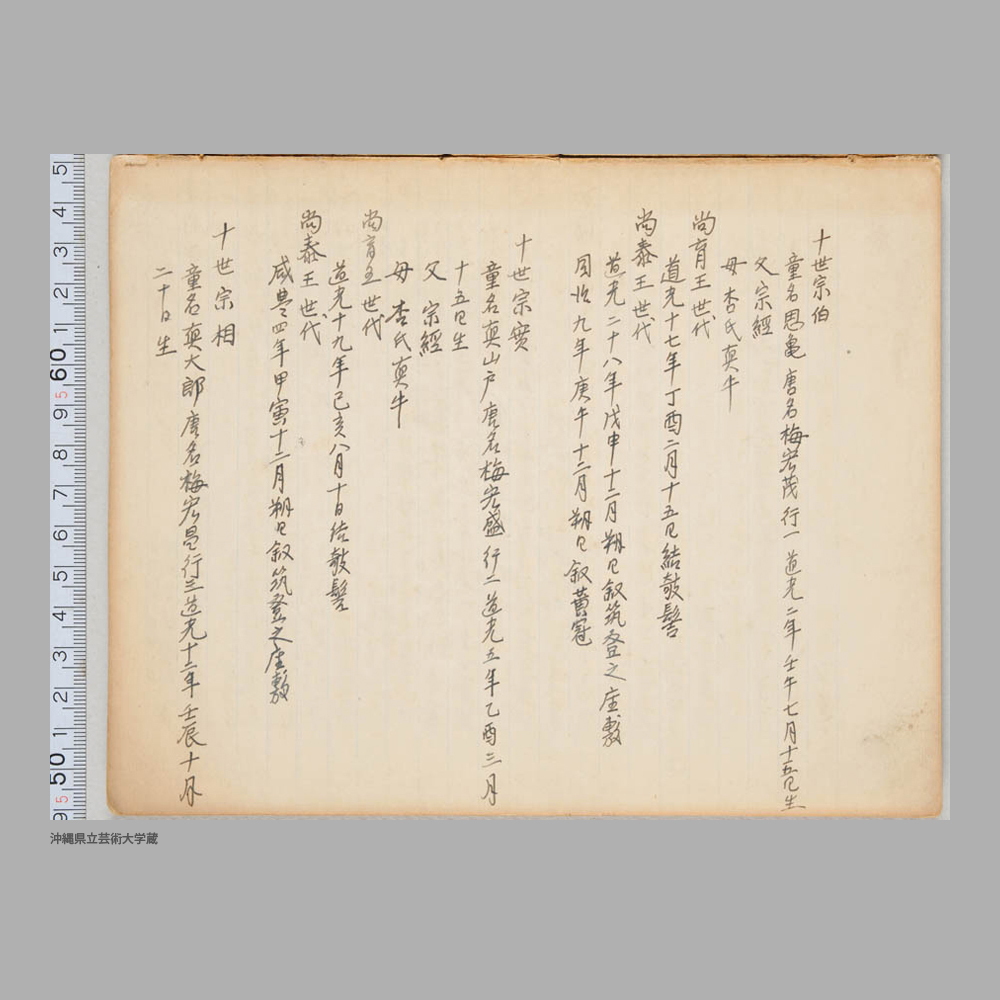 十世宗伯
童名思亀 唐名梅宏茂 行一 道光二年壬午七月十五日生
父 宗經
母 杏氏真牛
尚育王世代
道光十七年丁酉二月十五日結敧髻
尚泰王世代
道光二十八年戊申十二月朔日叙筑登之座敷
同治九年庚午十二月朔日叙黄冠
十世宗實
童名真山戸 唐名梅宏盛 行二 道光五年乙酉三月
十五日生
父 宗經
母 杏氏真牛
尚育王世代
道光十九年己亥八月十日结敧髻
尚泰王世代
咸豊四年甲寅十二月朔日叙筑登之座敷
十世宗相
童名真大郎 唐名梅宏昌 行三 道光十二年壬辰十月
二十日生
5 4 3 2 1 60 5 9 8 7 6 5 4 3 2 1 50 5 9
沖縄県立芸術大学蔵